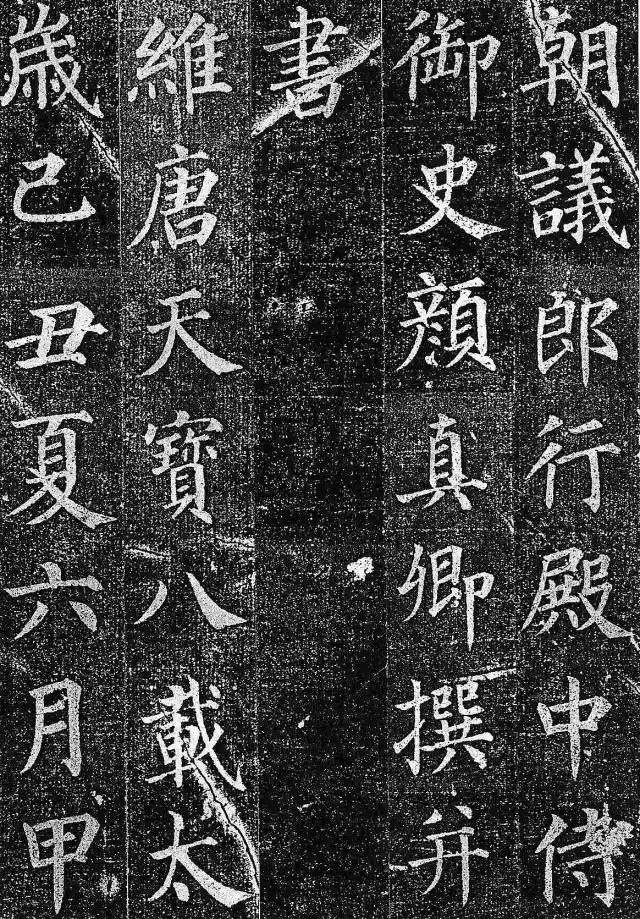 朝議郎行殿中侍
御史顔真卿撰并
書
維唐天寶八載太
歳己丑夏六月甲